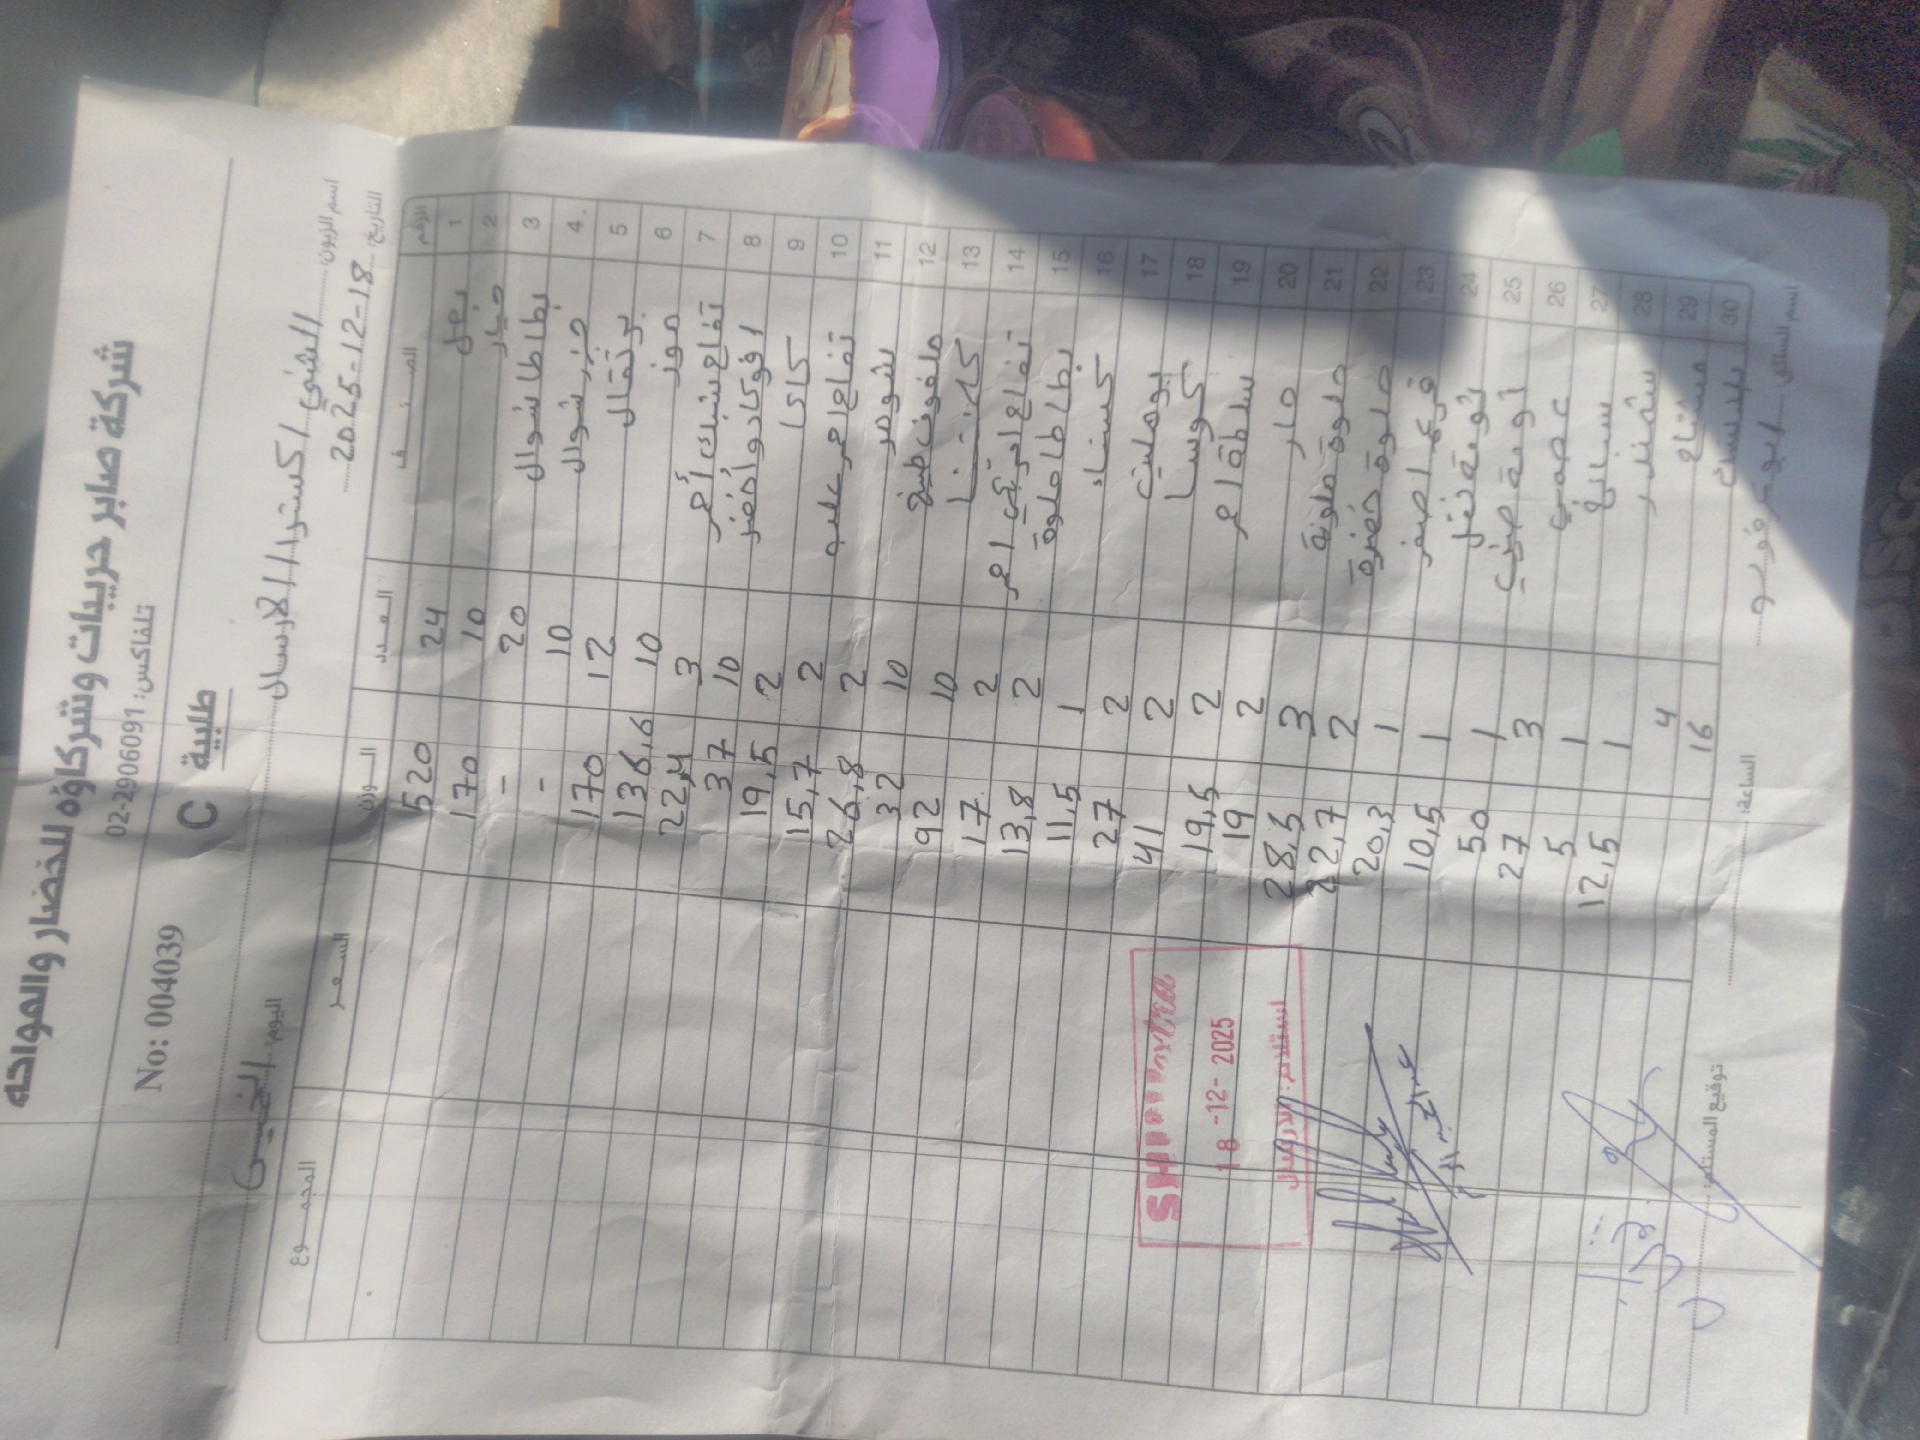 شركة صابر حريبات وشركاؤه للخضار والفواكه
تلفاكس: 02-2906091
No: 004039
طلبية C
اسم الزبون: الشني اكسترا / الارسال
التاريخ: 18-12-2025
اليوم: الخميس
الرقم الصنف العدد الوزن السعر المجموع
1 بصل 24 520
2 خيار 10 170
3 بطاطا شوال 20 -
4 جزر شوال 10 -
5 برتقال 12 170
6 موز 10 136,6
7 تفاح شبك أحمر 3 22,4
8 افوكادو أخضر 10 37
9 كاكا 2 19,5
10 تفاح احمر علبه 2 15,7
11 شومر 2 26,8
12 ملفوف صيني 10 32
13 10 92
14 تفاح تركي احمر 2 17
15 بطاطا حلوة 2 13,8
16 كستناء 1 11,5
17 بوملي 2 27
18 كوسا 2 41
19 سلطة احمر 2 19,5
20 حار 2 19
21 حلوة ملونة 3 28,5
22 حلوة خضرة 2 22,7
23 قرع اصفر 1 20,3
24 ثومة نخل 1 10,5
25 ثومة صيني 1 50
26 3 27
27 سبانخ 1 5
28 شمندر 1 12,5
29 4
30 16
SHINI extra
18 -12- 2025
استلام: الارسال
اسم السائق
الساعة:
توقيع المستلم: